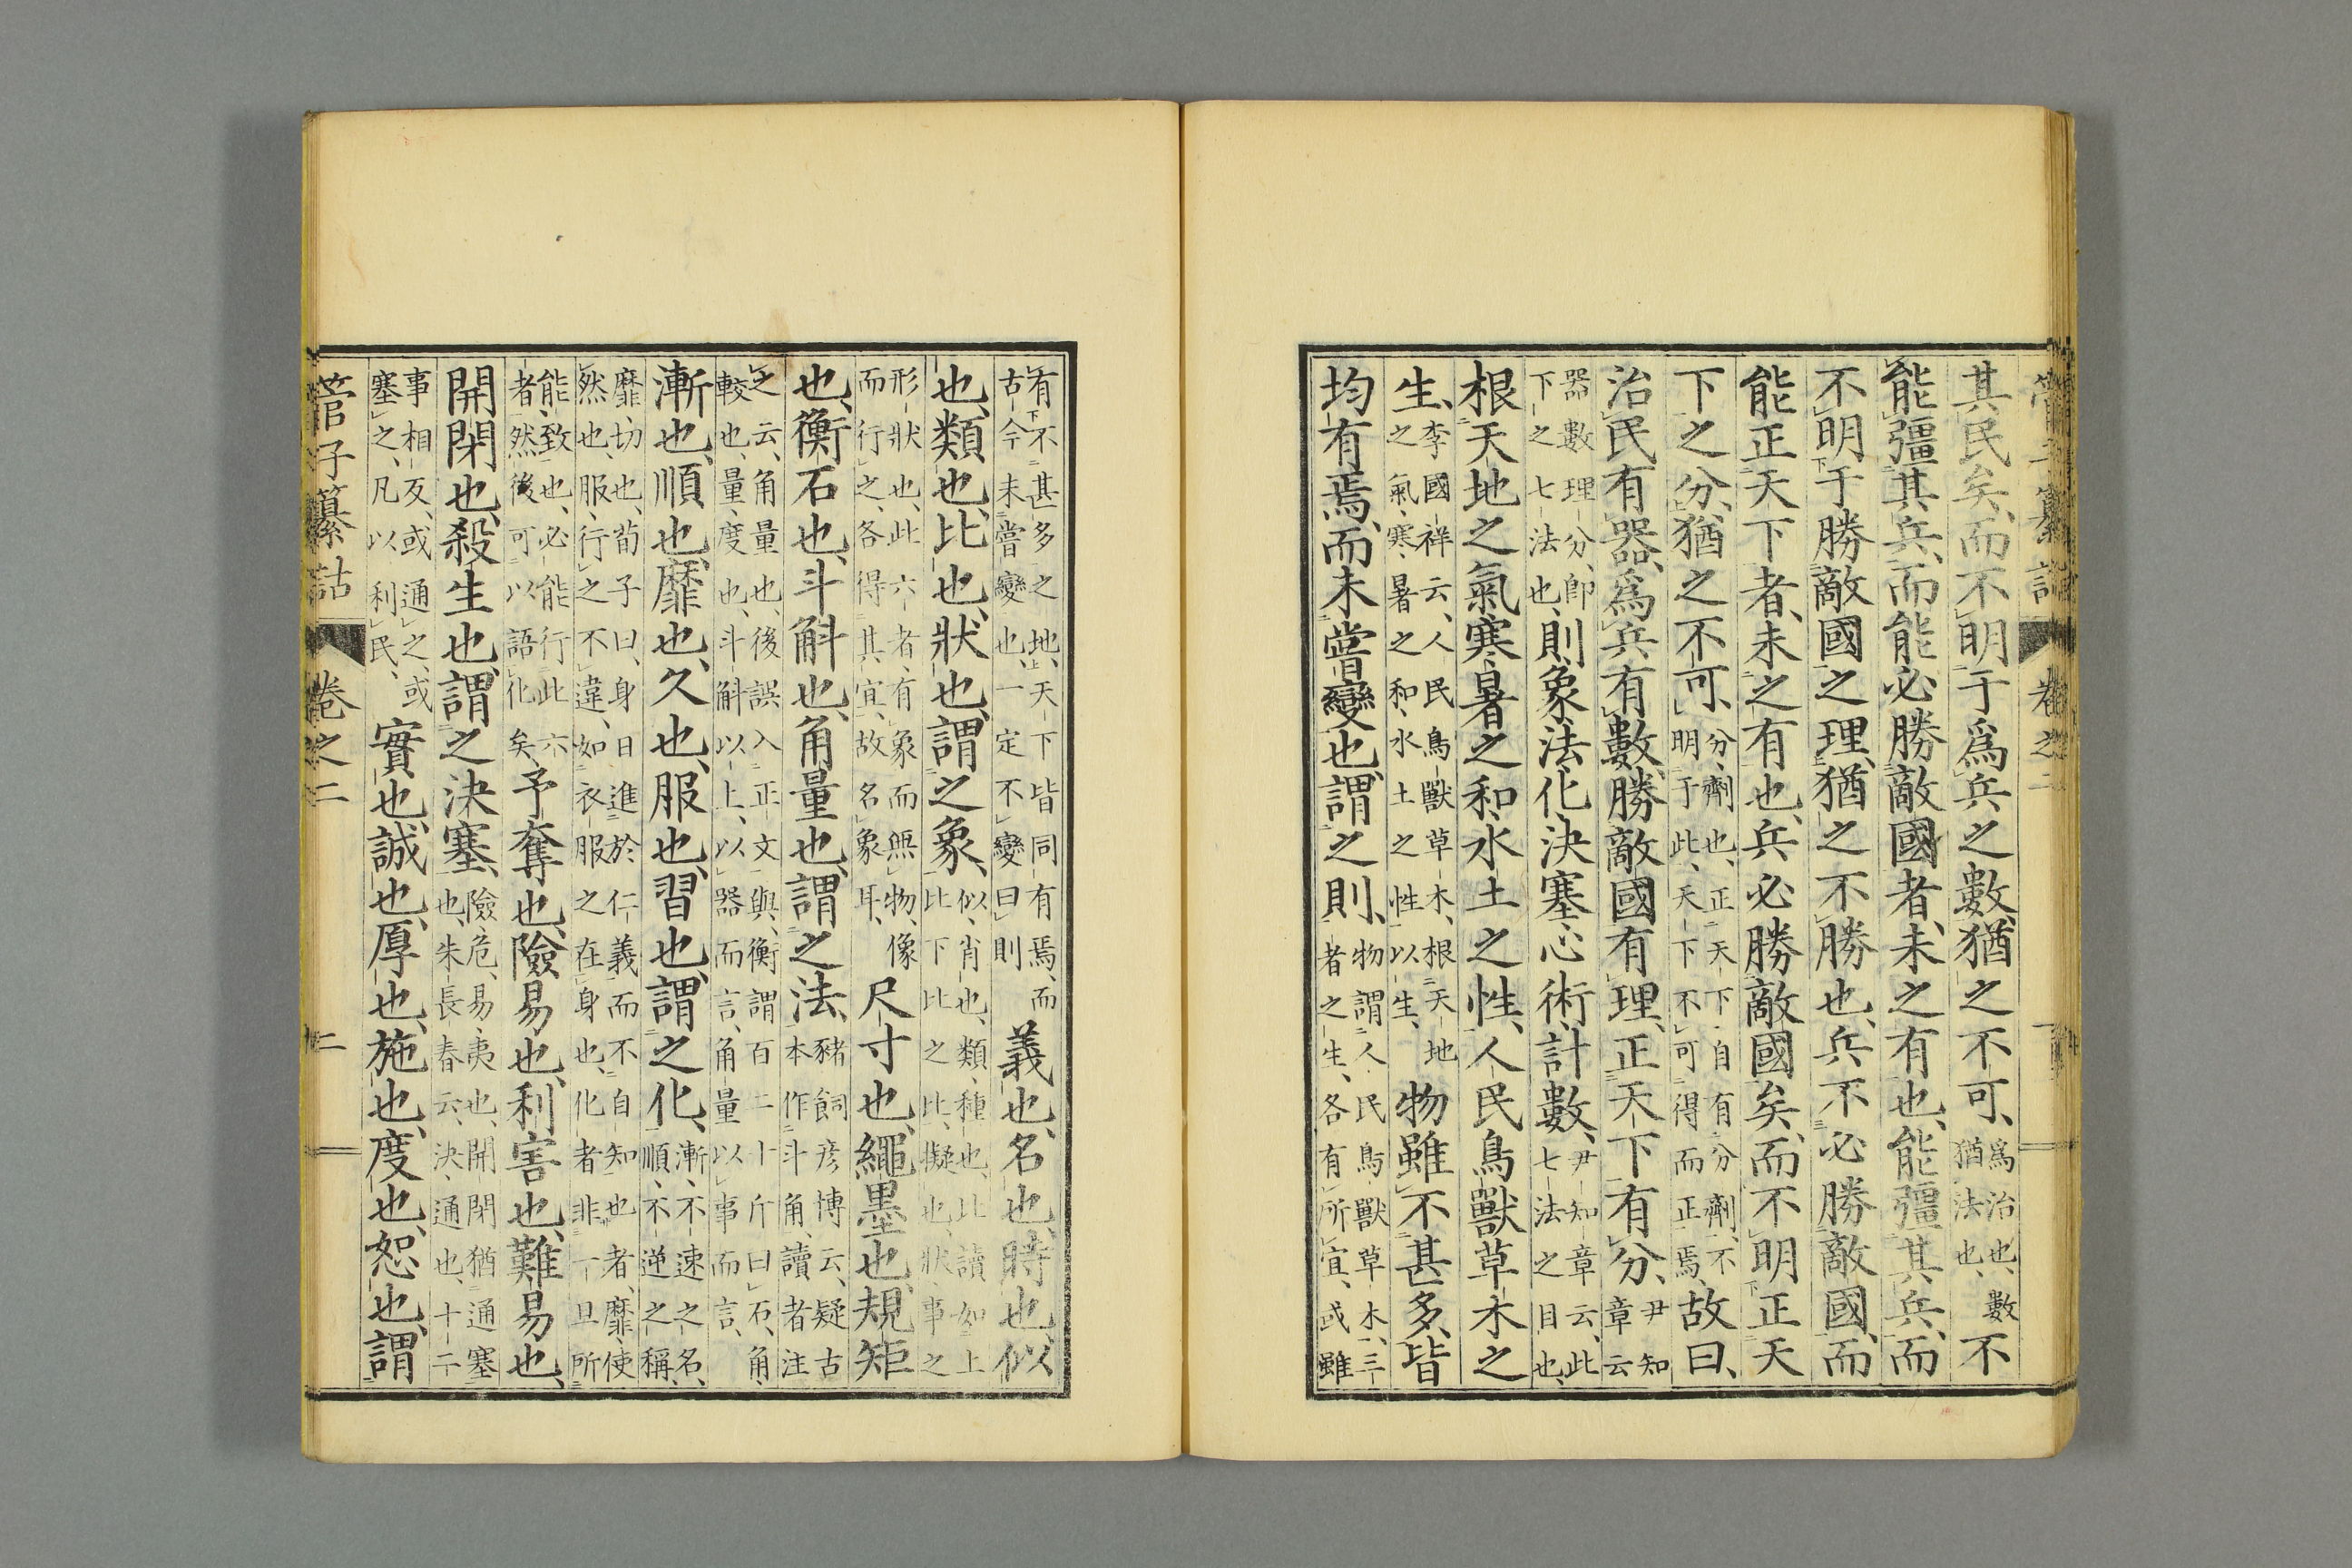 管子纂詁 卷之二 一
其民矣、而不明于爲兵之數、猶之不可、爲治也、數猶法也、不
能彊其兵、而能必勝敵國者、未之有也、能彊其兵、而
不明于勝敵國之理、猶之不勝也、兵不必勝敵國、而
能正天下者、未之有也、兵必勝敵國矣、而不明正天
下之分、猶之不可、分、劑也、正天下自有分劑、不明于此、天下不可得而正焉、故曰、
治民有器、爲兵有數、勝敵國有理、正天下有分、尹知章云
器數理分、卽下之七法也、則象法化決塞心術計數、尹知章云、此七法之目也、
根天地之氣寒暑之和、水土之性、人民鳥獸草木之
生、李國祥云、人民鳥獸草木、根天地之氣、寒、暑之和、水土之性以生、物雖不甚多、皆
均有焉、而未嘗變也、謂之則、物謂人民鳥獸草木、三者之生、各有所宜、或雖
有不甚多之地、天下皆同有焉、而古今未嘗變也、一定不變曰則義也、名也、時也、似
也、類也、比也、狀也、謂之象、似、肖也、類、種也、比讀如上比下比之比、擬也、狀、事之
形狀也、此六者、有象而無物、像而行之、各得其宜、故名象耳、尺寸也、繩墨也、規矩
也、衡石也、斗斛也、角量也、謂之法、豬飼彦博云、疑古本作斗角、讀者注
之云、角量也、後誤入正文與、衡謂百二十斤曰石、角、較也、量、度也、斗斛以上、以器而言、角量以事而言、
漸也、順也、靡也、久也、服也、習也、謂之化、漸、不速之名、順、不逆之稱、
靡切也、荀子曰、身日進於仁義而不自知也者、靡使然也、服、行之不違、如衣服之在身也、化者非一旦所
能致也、必能行此六者、然後可以語化矣、予奪也、險易也、利害也、難易也、
開閉也、殺生也、謂之決塞、險、危、易、夷也、開閉猶通塞也、朱長春云、決、通也、十二
事相反、或通之、或塞之、凡以利民、實也、誠也、厚也、施也、度也、恕也、謂
管子纂詁 卷之二 二